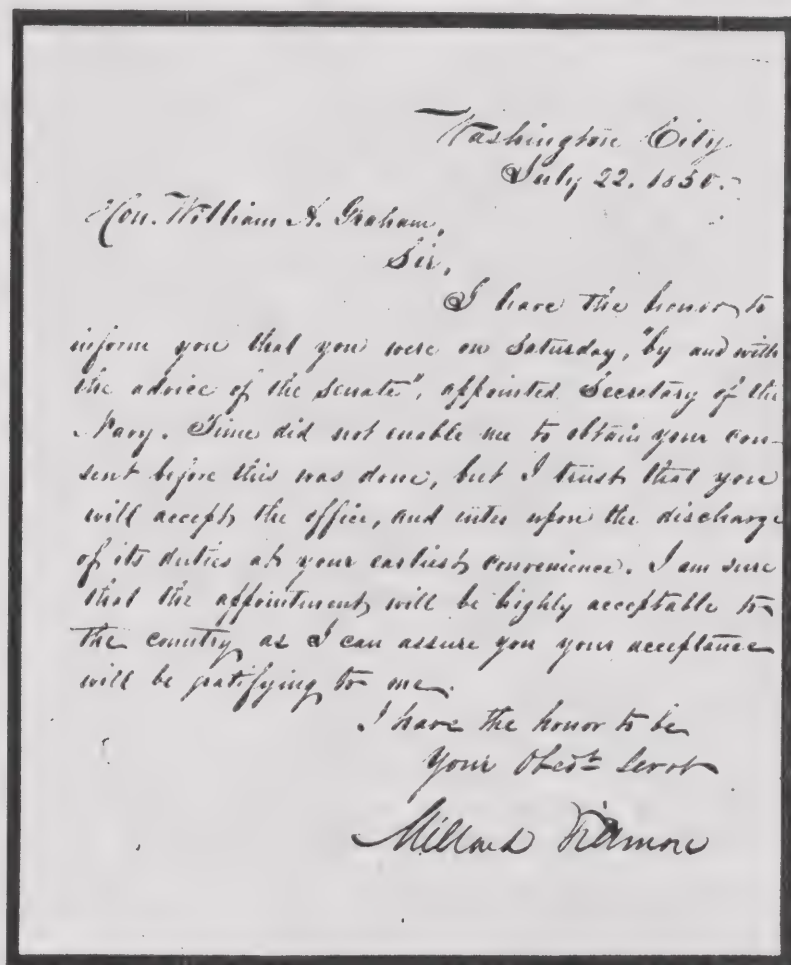 Washington City
July 22. 1850.
Hon. William A. Graham,
Sir,
I have the honor to
inform you that you were on Saturday, "by and with
the advice of the Senate", appointed Secretary of the
Navy. Time did not enable me to obtain your con-
sent before this was done, but I trust that you
will accept the office, and enter upon the discharge
of its duties at your earliest convenience. I am sure
that the appointment will be highly acceptable to
the country, as I can assure you your acceptance
will be gratifying to me.
I have the honor to be
Your Obedt Servt
Millard Fillmore